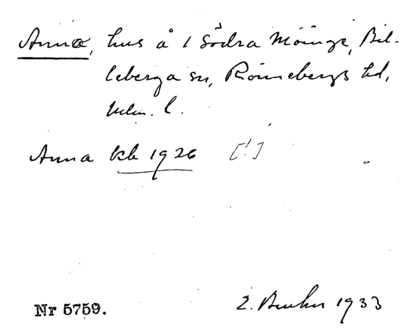 Anna, hus å 1 Södra Möinge, Bil-
leberga sn, Rönnebergs hd,
Mlm. l.
Anna kb 1926 [!]
Nr 5759. 2. 1933